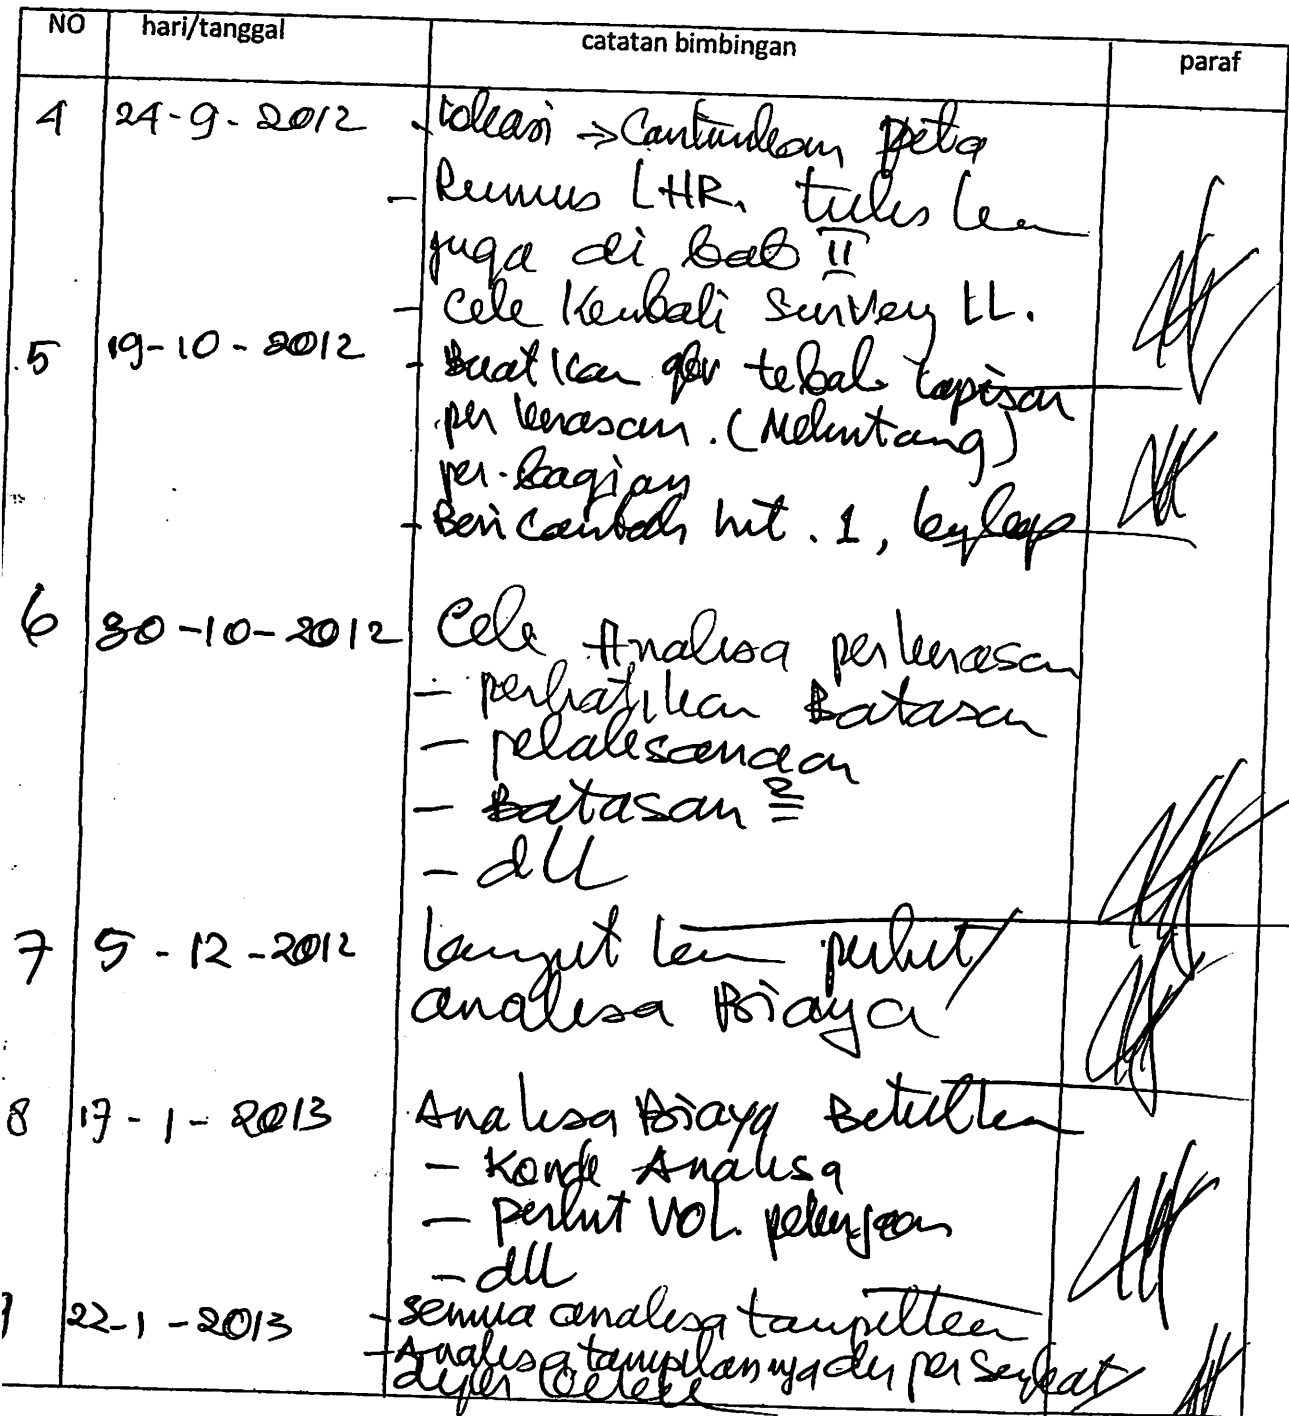 NO hari/tanggal catatan bimbingan paraf
4 24-9-2012 - Lokasi → Cantumkan peta
- Rumus LHR. tuliskan
juga di bab II
- Cek Kembali Survey LL.
5 19-10-2012 - Buatkan gbr tebal lapisan
perkerasan. (Melintang)
per-bagian
- Beri contoh hit. 1, lengkap
6 30-10-2012 Cek Analisa perkerasan
- perhatikan Batasan
- pelaksanaan
- Batasan 2
- dll
7 5-12-2012 Lanjutkan perhit/
analisa Biaya
8 17-1-2013 Analisa Biaya Betulkan
- Analisa
- perhit VOL. pekerjaan
- dll
22-1-2013 - semua analisa tampilkan
- Analisa tampilannya